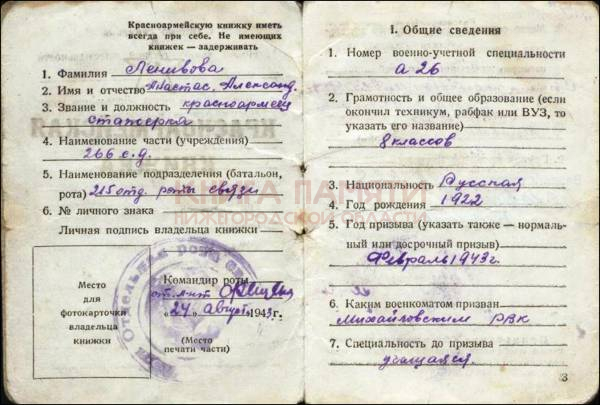 Красноармейскую книжку иметь
всегда при себе. Не имеющих
книжек — задерживать
1. Фамилия Ленивова
2. Имя и отчество Анастас. Александ.
3. Звание и должность красноармеец
4. Наименование части (учреждения)
266 с.д.
5. Наименование подразделения (батальон,
рота) 215 отд. роты связи
6. № личного знака
Личная подпись владельца книжки
Место
для
фотокарточки
владельца
книжки
Командир роты
ст. л-нт
„24“ август 1943 г.
(Место
печати части)
Отдельная рота
1. Общие сведения
1. Номер военно-учетной специальности
а 26
2. Грамотность и общее образование (если
окончил техникум, рабфак или ВУЗ, то
указать его название)
8 классов
3. Национальность Русская
4. Год рождения 1922
5. Год призыва (указать также — нормаль-
ный или досрочный призыв)
Февраль 1943 г.
6. Каким военкоматом призван
Михайловским РВК
7. Специальность до призыва
учащаяся.
3
КНИГА ПАМЯТИ
НИЖЕГОРОДСКОЙ ОБЛАСТИ